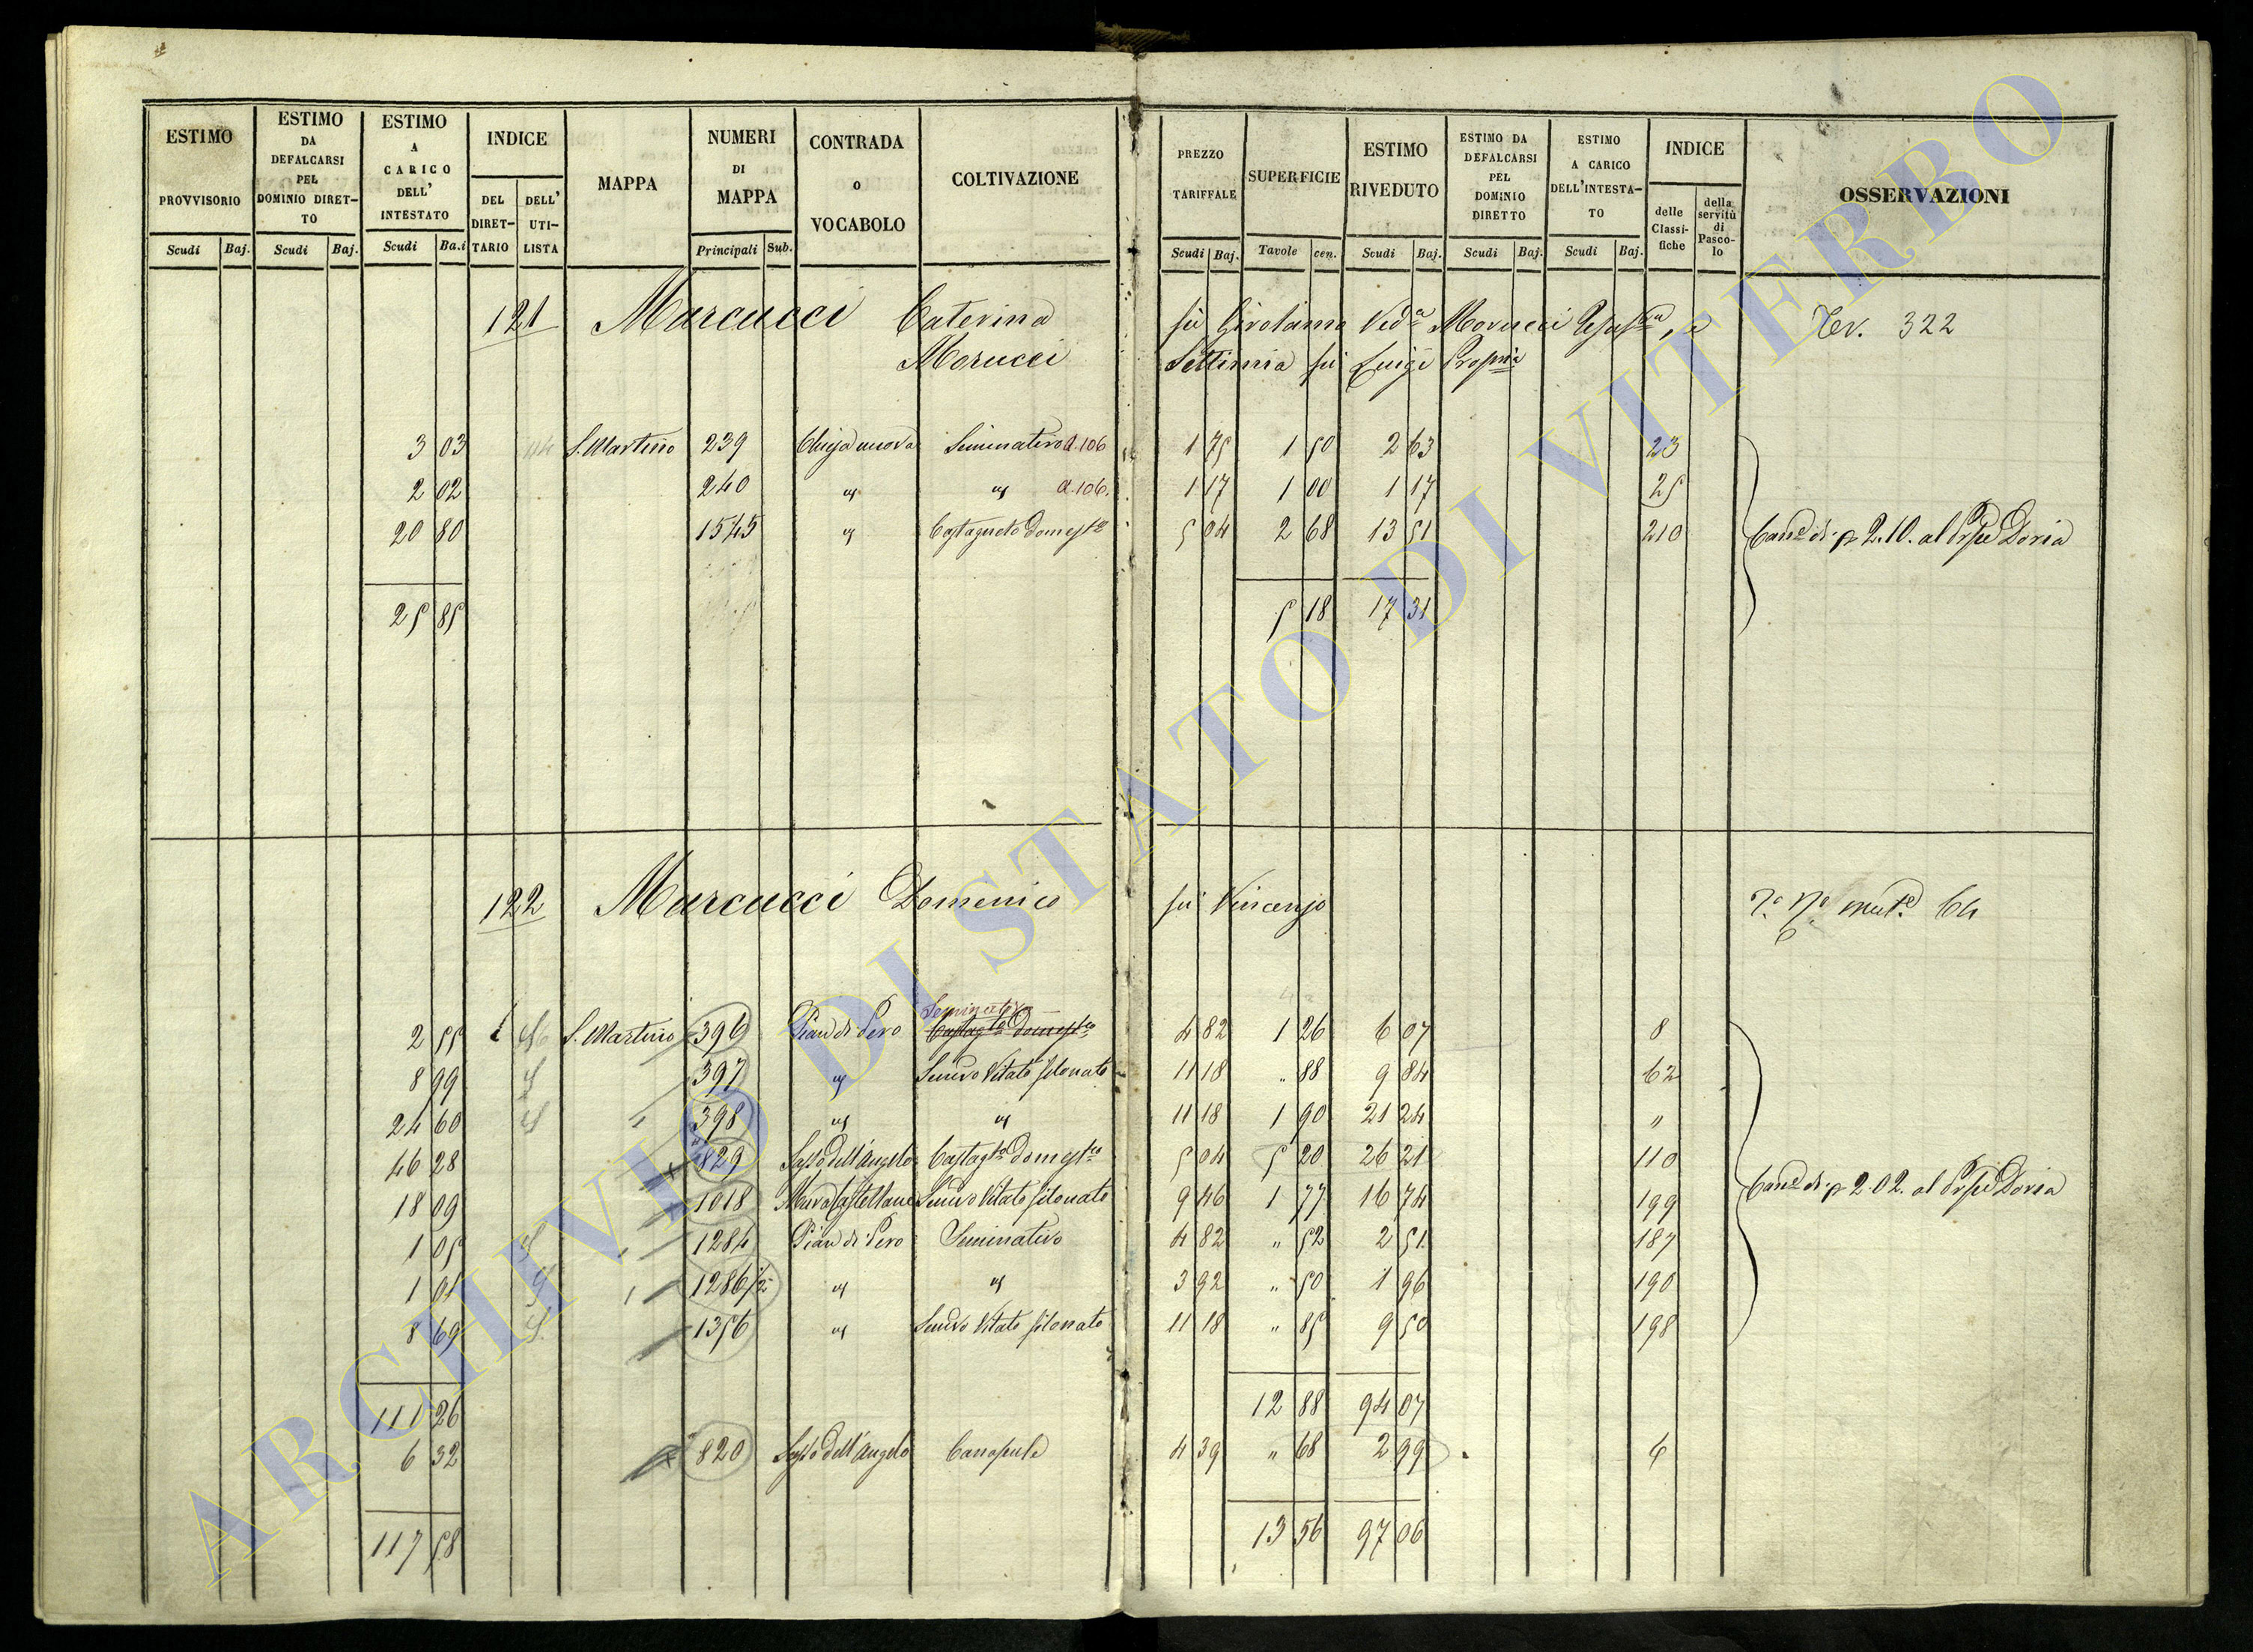 ESTIMO PROVVISORIO Scudi Baj.
ESTIMO DA DEFALCARSI PEL DOMINIO DIRET-TO Scudi Baj.
ESTIMO A CARICO DELL' INTESTATO Scudi Ba.i
INDICE DEL DIRET-TARIO DELL' UTI-LISTA
MAPPA
NUMERI DI MAPPA Principali Sub.
CONTRADA o VOCABOLO
COLTIVAZIONE
PREZZO TARIFFALE Scudi Baj.
SUPERFICIE Tavole cen.
ESTIMO RIVEDUTO Scudi Baj.
ESTIMO DA DEFALCARSI PEL DOMINIO DIRETTO Scudi Baj.
ESTIMO A CARICO DELL'INTESTA-TO Scudi Baj.
INDICE delle Classi-fiche della servitù di Pasco-lo
OSSERVAZIONI
121 Marcucci Caterina fu Girolamo Ved.a Morucci e Rev. 322
Morucci Settimia fu Luigi Propria
3 03 S. Martino 239 Chiesa nuova Seminativo a.106 1 75 1 50 2 63 23
2 02 240 " " a.106. 1 17 1 00 1 17 25
20 80 1545 " Castagneto Domest.o 5 04 2 68 13 51 210 2.10. al Doria
25 85 5 18 17 31
122 Marcucci Domenico fu Vincenzo 64
Seminativo
2 55 S. Martino 396 Pian di Pero Castag.to Domest.o 4 82 1 26 6 07 8
8 99 397 " Semvo Vitato filonato 11 18 " 88 9 84 62
24 60 398 " " 11 18 1 90 21 24 "
46 28 829 Sasso dell'Angelo Castag.to domest.o 5 04 5 20 26 21 110
18 09 1018 Castellane Semvo Vitato filonato 9 46 1 77 16 74 199 2.02. al Doria
1 05 1284 Pian di Pero Seminativo 4 82 " 52 2 51 187
1 01 1286/2 " " 3 92 " 50 1 96 190
8 69 1356 " Semvo Vitato filonato 11 18 " 85 9 50 198
111 26 12 88 94 07
6 32 820 Sasso dell'Angelo Canapule 4 39 " 68 2 99 6
117 58 13 56 97 06
ARCHIVIO DI STATO DI VITERBO